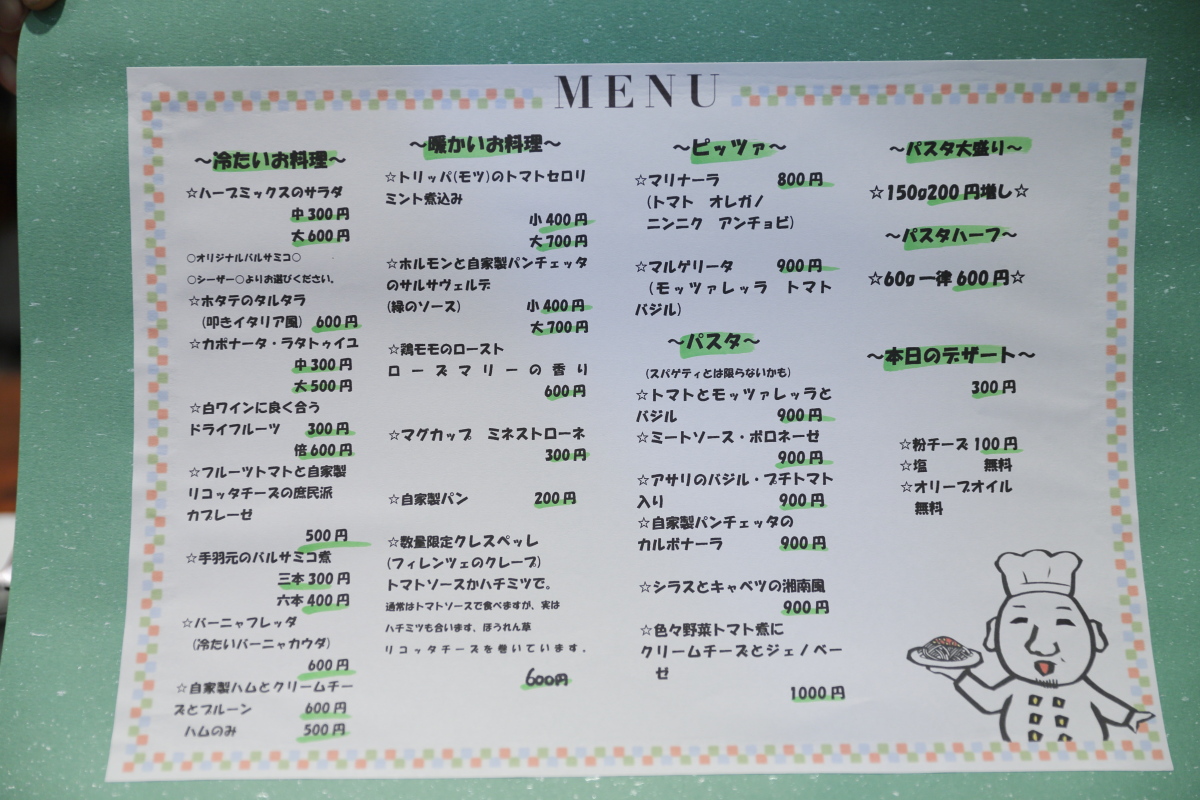 MENU
～冷たいお料理～
☆ハーブミックスのサラダ
中300円
大600円
○オリジナルバルサミコ○
○シーザー○よりお選びください。
☆ホタテのタルタラ
(叩きイタリア風) 600円
☆カポナータ・ラタトゥイユ
中300円
大500円
☆白ワインに良く合う
ドライフルーツ 300円
倍600円
☆フルーツトマトと自家製
リコッタチーズの庶民派
カプレーゼ
500円
☆手羽元のバルサミコ煮
三本300円
六本400円
☆バーニャフレッダ
(冷たいバーニャカウダ)
600円
☆自家製ハムとクリームチー
ズとプルーン 600円
ハムのみ 500円
～暖かいお料理～
☆トリッパ(モツ)のトマトセロリ
ミント煮込み
小400円
大700円
☆ホルモンと自家製パンチェッタ
のサルサヴェルデ
(緑のソース) 小400円
大700円
☆鶏モモのロースト
ローズマリーの香り
600円
☆マグカップ ミネストローネ
300円
☆自家製パン 200円
☆数量限定クレスペッレ
(フィレンツェのクレープ)
トマトソースかハチミツで。
通常はトマトソースで食べますが、実は
ハチミツも合います、ほうれん草
リコッタチーズを巻いています。
600円
～ピッツァ～
☆マリナーラ 800円
(トマト オレガノ
ニンニク アンチョビ)
☆マルゲリータ 900円
(モッツァレッラ トマト
バジル)
～パスタ～
(スパゲティとは限らないかも)
☆トマトとモッツァレッラと
バジル 900円
☆ミートソース・ボロネーゼ
900円
☆アサリのバジル・プチトマト
入り 900円
☆自家製パンチェッタの
カルボナーラ 900円
☆シラスとキャベツの湘南風
900円
☆色々野菜トマト煮に
クリームチーズとジェノベー
ゼ
1000円
～パスタ大盛り～
☆150g200円増し☆
～パスタハーフ～
☆60g一律600円☆
～本日のデザート～
300円
☆粉チーズ100円
☆塩 無料
☆オリーブオイル
無料